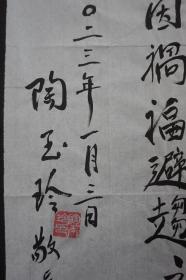 因禍福避趨之
〇二三年一月三日
陶玉玲敬